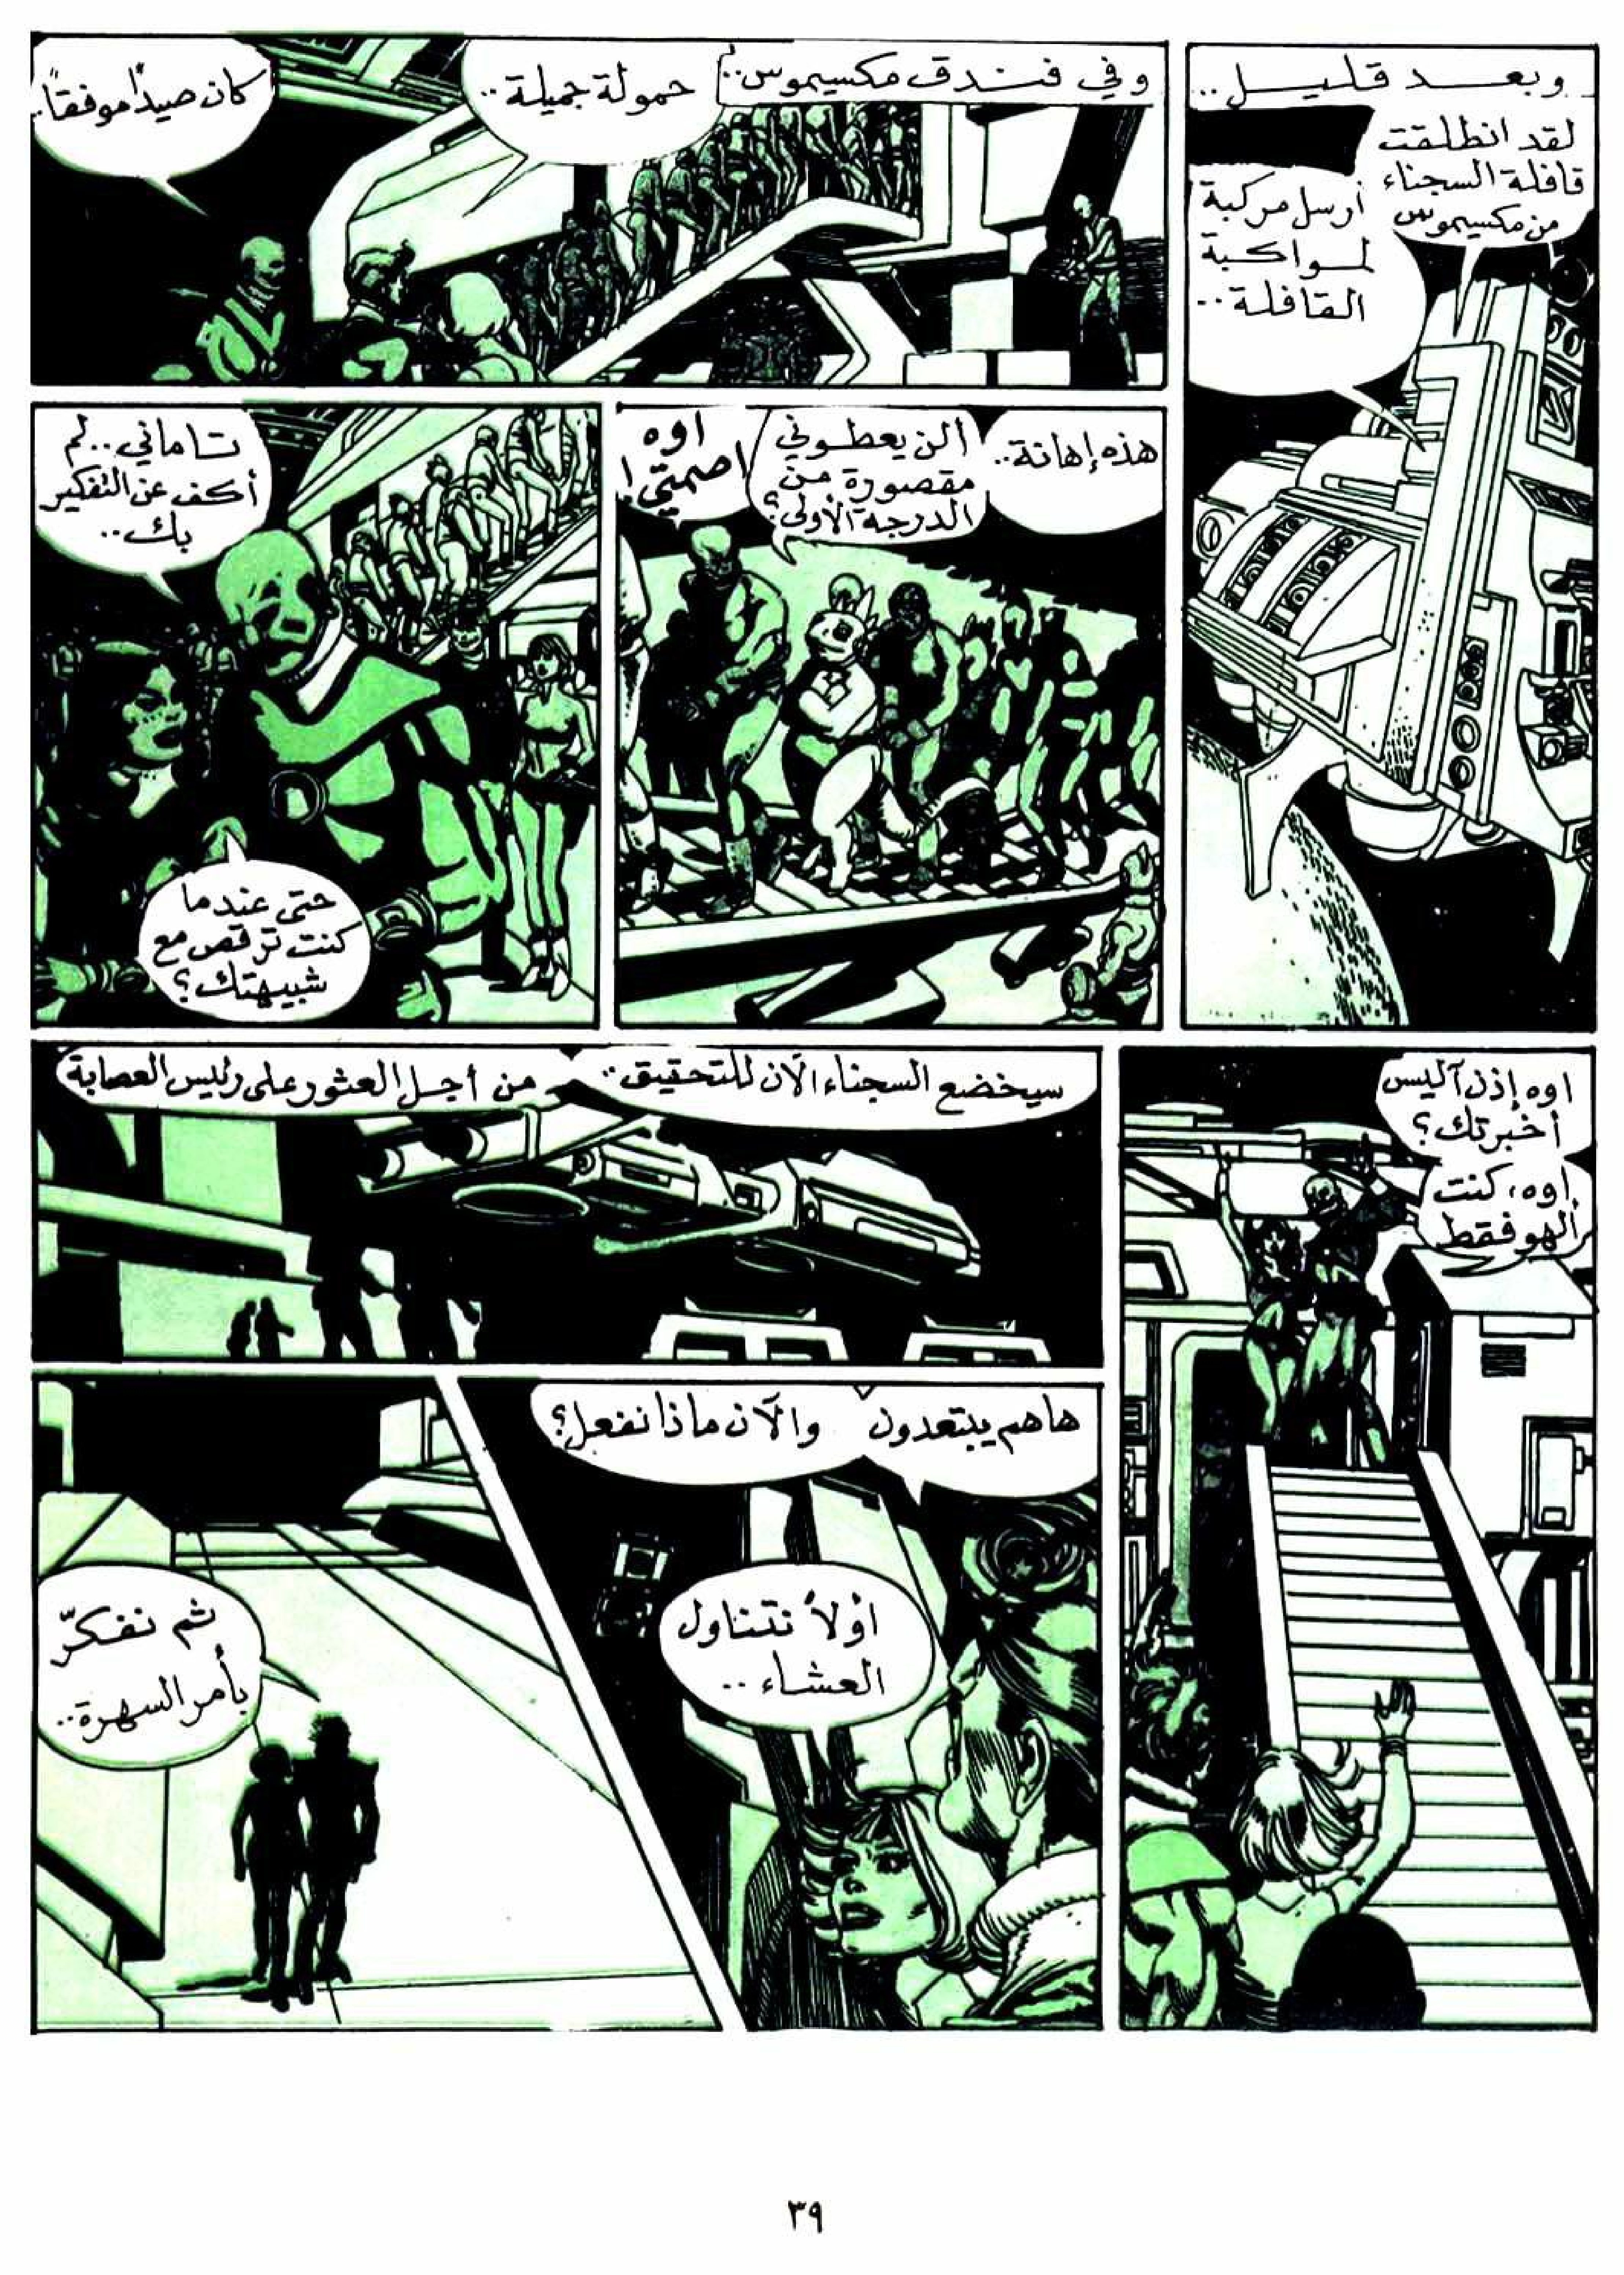 وبعد قليل..
لقد انطلقت
قافلة السجناء
من مكسيموس
أرسل مركبة
لمواكبة
القافلة..
وفي فندق مكسيموس..
حمولة جميلة..
كان صيدًا موفقًا..
هذه إهانة..
ألن يعطوني
مقصورة من
الدرجة الأولى؟
اوه
اصمتي!
تاماني.. لم
أكف عن التفكير
بك..
حتى عندما
كنت ترقص مع
شبيهتك؟
اوه إذن آليس
أخبرتك؟
اوه، كنت
ألهو فقط
سيخضع السجناء الآن للتحقيق..
من أجل العثور على رئيس العصابة
هاهم يبتعدون
والآن ماذا نفعل؟
أولاً نتناول
العشاء..
ثم نفكّر
بأمر السهرة..
٣٩